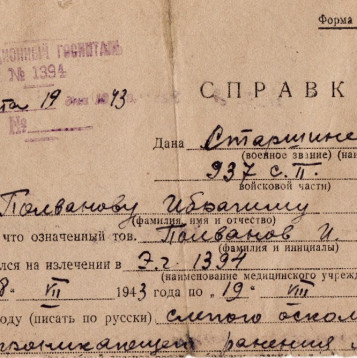 Форма
ЦИОННЫЙ ГОСПИТАЛЬ
№ 1394
та 19 43
СПРАВК
№
Дана Старшине
(военное звание) (наи
937 с.п.
войсковой части)
Полванову Ибрагиму
(фамилия, имя и отчество)
что означенный тов. Полванов И,
(фамилия и инициалы)
лся на излечении в Э.г. 1394
(наименование медицинского учрежд
8 VII 1943 года по „19" VIII
оду (писать по русски) слепого оскол
ранения